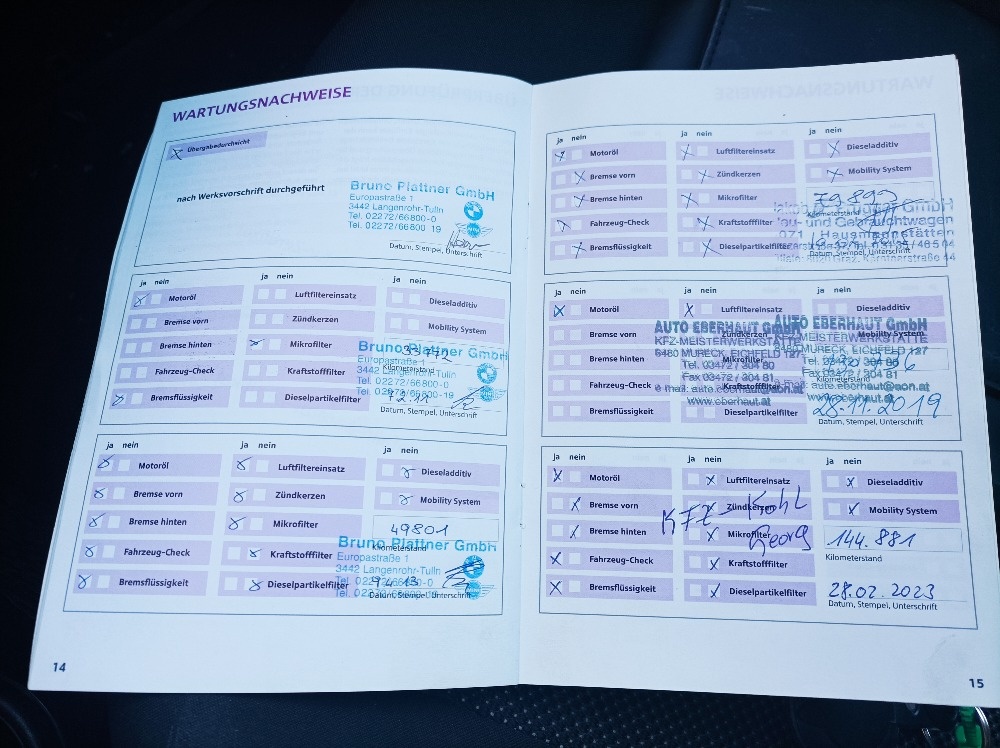 WARTUNGSNACHWEISE
Übergabedursicht
nach Werksvorschrift durchgeführt
Bruno Plattner GmbH
Europastraße 1
3442 Langenrohr-Tulln
Tel. 02272/66800-0
02272/66800 19
Datum, Stempel, Unterschrift
ja nein
Motoröl
Bremse vorn
Bremse hinten
Fahrzeug-Check
Bremsflüssigkeit
ja nein
Luftfiltereinsatz
Zündkerzen
Mikrofilter
Kraftstofffilter
Dieselpartikelfilter
ja nein
Dieseladditiv
Mobility System
Bruno Plattner GmbH
Kilometerstand
Europastraße 1
3442 Langenrohr-Tulln
Tel. 02272/66800-0
Datum, Stempel, Unterschrift
ja nein
Motoröl
Bremse vorn
Bremse hinten
Fahrzeug-Check
Bremsflüssigkeit
ja nein
Luftfiltereinsatz
Zündkerzen
Mikrofilter
Kraftstofffilter
Dieselpartikelfilter
ja nein
Dieseladditiv
Mobility System
49801
Kilometerstand
Bruno Plattner GmbH
Europastraße 1
3442 Langenrohr-Tulln
Datum, Stempel, Unterschrift
14
WARTUNGSNACHWEISE
ja nein
Motoröl
Bremse vorn
Bremse hinten
Fahrzeug-Check
Bremsflüssigkeit
ja nein
Luftfiltereinsatz
Zündkerzen
Mikrofilter
Kraftstofffilter
Dieselpartikelfilter
ja nein
Dieseladditiv
Mobility System
79.899
Kilometerstand
GmbH
und Gebrauchtwagen
Hausmannstätten
Datum, Stempel, Unterschrift
ja nein
Motoröl
Bremse vorn
Bremse hinten
Fahrzeug-Check
Bremsflüssigkeit
ja nein
Luftfiltereinsatz
Zündkerzen
Mikrofilter
Kraftstofffilter
Dieselpartikelfilter
ja nein
Dieseladditiv
Mobility System
Kilometerstand
AUTO EBERHAUT GmbH
KFZ-MEISTERWERKSTÄTTE
8480 MURECK, EICHFELD 127
Tel. 03472 / 304 80
Fax 03472 / 304 81
e-mail: auto.eberhaut@aon.at
www.eberhaut.at
AUTO EBERHAUT GmbH
MEISTERWERKSTÄTTE
8480 MURECK, EICHFELD 127
Fax 03472 / 304 81
auto.eberhaut@aon.at
www.eberhaut.at
28.11.2019
Datum, Stempel, Unterschrift
ja nein
Motoröl
Bremse vorn
Bremse hinten
Fahrzeug-Check
Bremsflüssigkeit
ja nein
Luftfiltereinsatz
Zündkerzen
Mikrofilter
Kraftstofffilter
Dieselpartikelfilter
KFZ-Kohl
Georg
ja nein
Dieseladditiv
Mobility System
144.881
Kilometerstand
28.02.2023
Datum, Stempel, Unterschrift
15